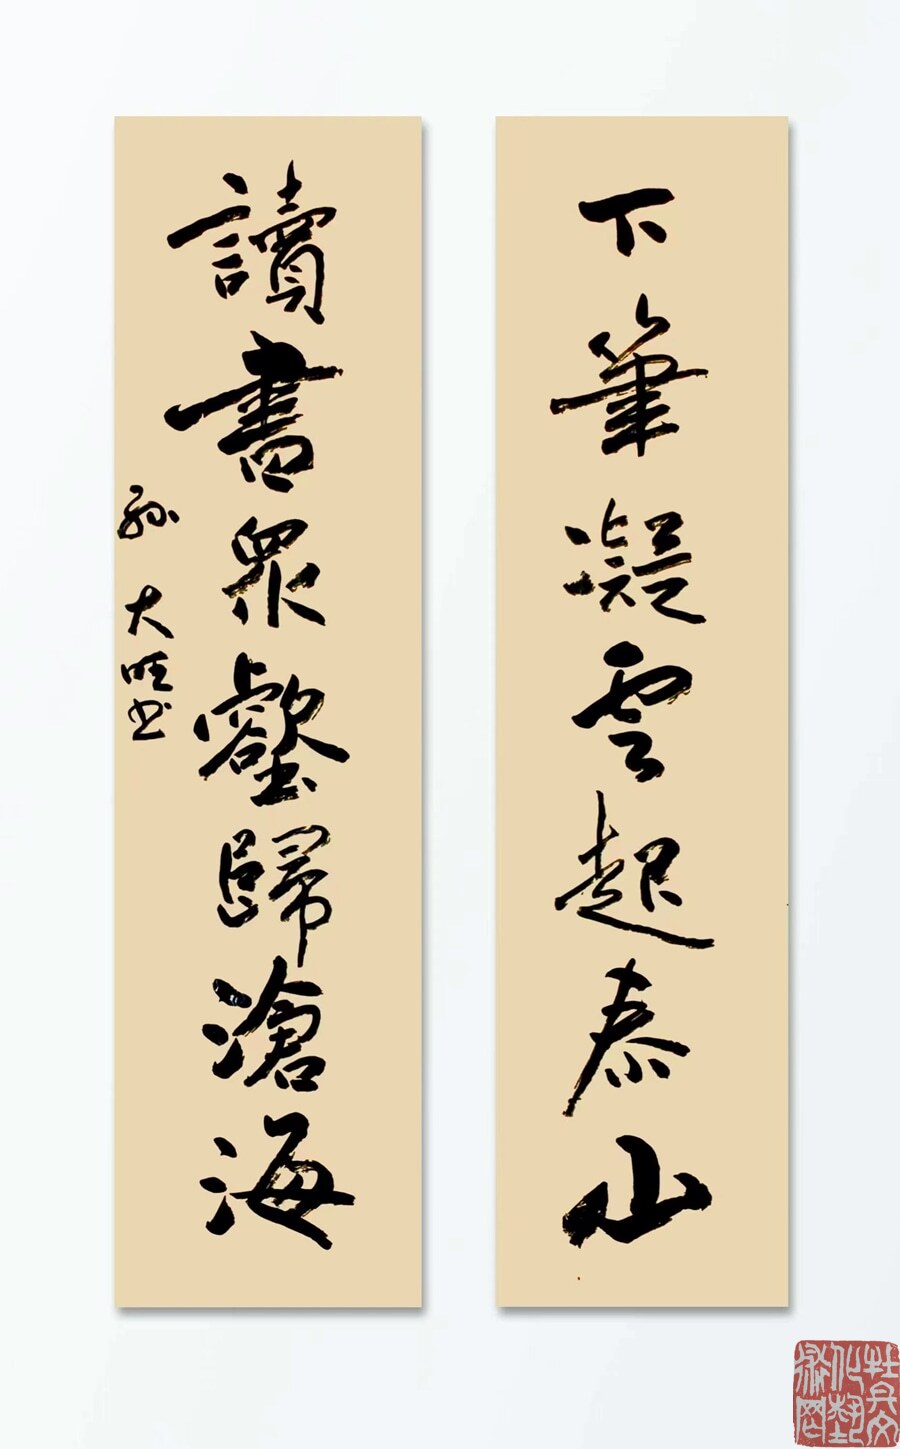 下筆凝雲起泰山
讀書眾壑歸滄海
孫大旺书